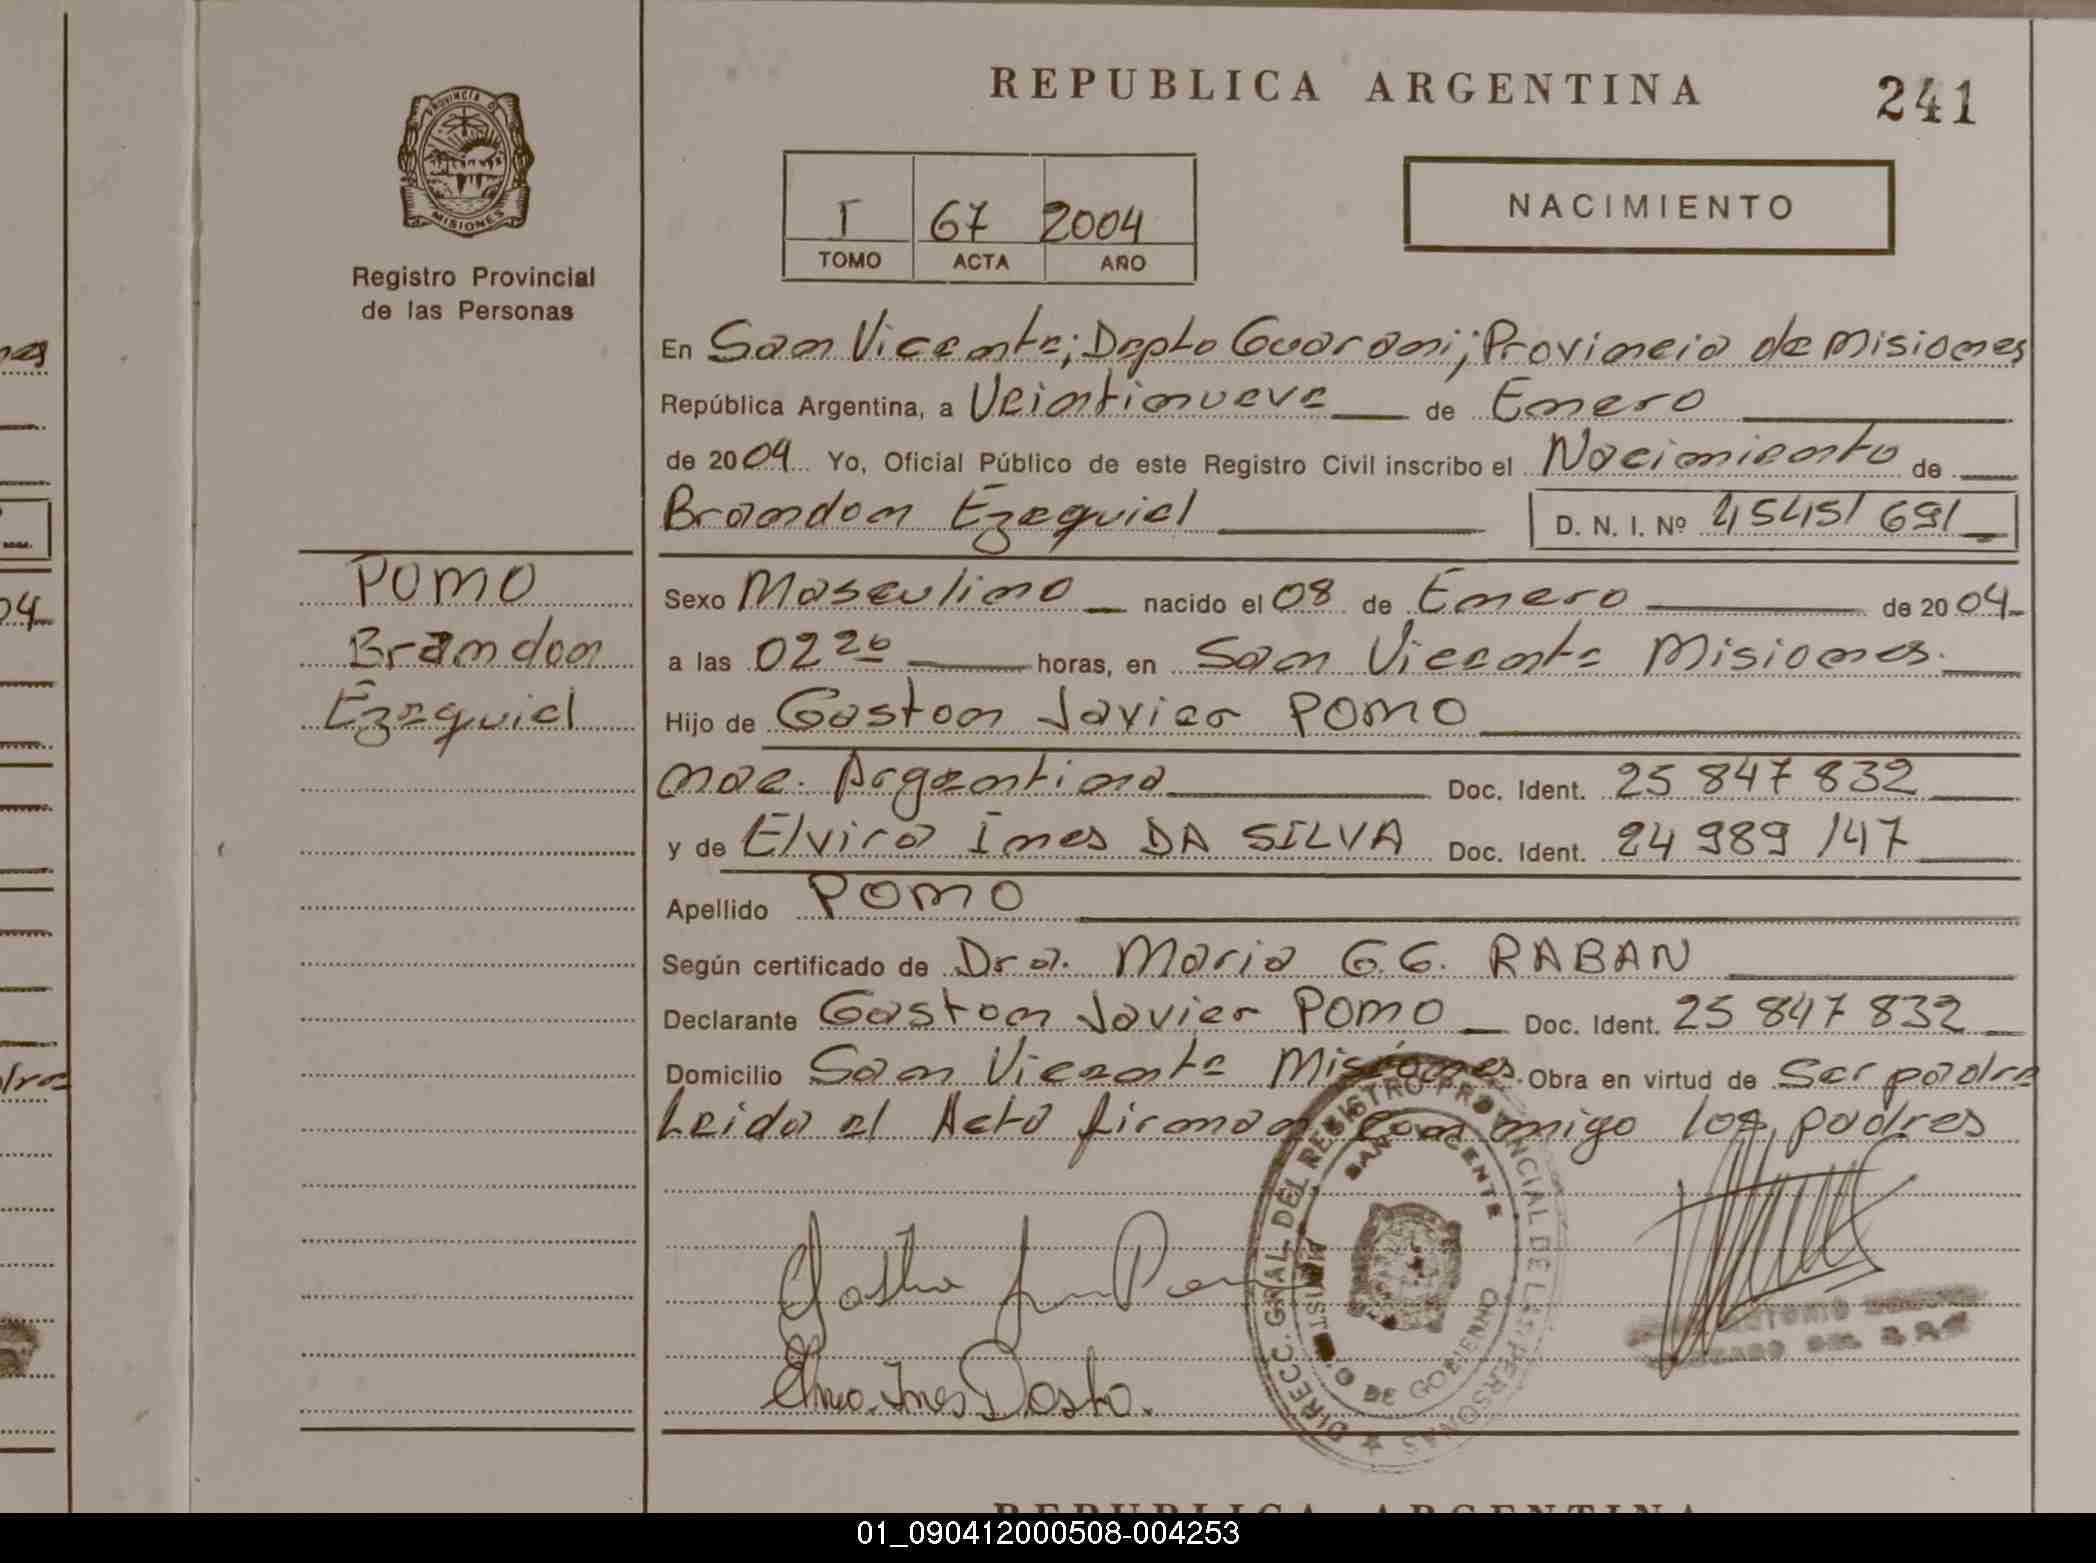 REPUBLICA ARGENTINA
241
PROVINCIA DE
MISIONES
Registro Provincial
de las Personas
I 67 2004
TOMO ACTA AÑO
NACIMIENTO
En San Vicente; Depto Guarani; Provincia de Misiones
República Argentina, a Veintinueve de Enero
de 2004 Yo, Oficial Público de este Registro Civil inscribo el Nacimiento de
Brandon Ezequiel D. N. I. Nº 45451691
POMO
Brandon
Ezequiel
Sexo Masculino nacido el 08 de Enero de 2004
a las 02 20 horas, en San Vicente Misiones.
Hijo de Gaston Javier POMO
nac. Argentina Doc. Ident. 25 847 832
y de Elvira Ines DA SILVA Doc. Ident. 24 989 147
Apellido POMO
Según certificado de Dra. Maria G.G. RABAN
Declarante Gaston Javier POMO Doc. Ident. 25 847 832
Domicilio San Vicente Misiones. Obra en virtud de Ser padre
Leida el Acta firman conmigo los padres
DIRECC. GRAL. DEL REGISTRO PROVINCIAL DE LAS PERSONAS
SAN VICENTE
DE GOBIERNO
REPUBLICA ARGENTINA
01_090412000508-004253